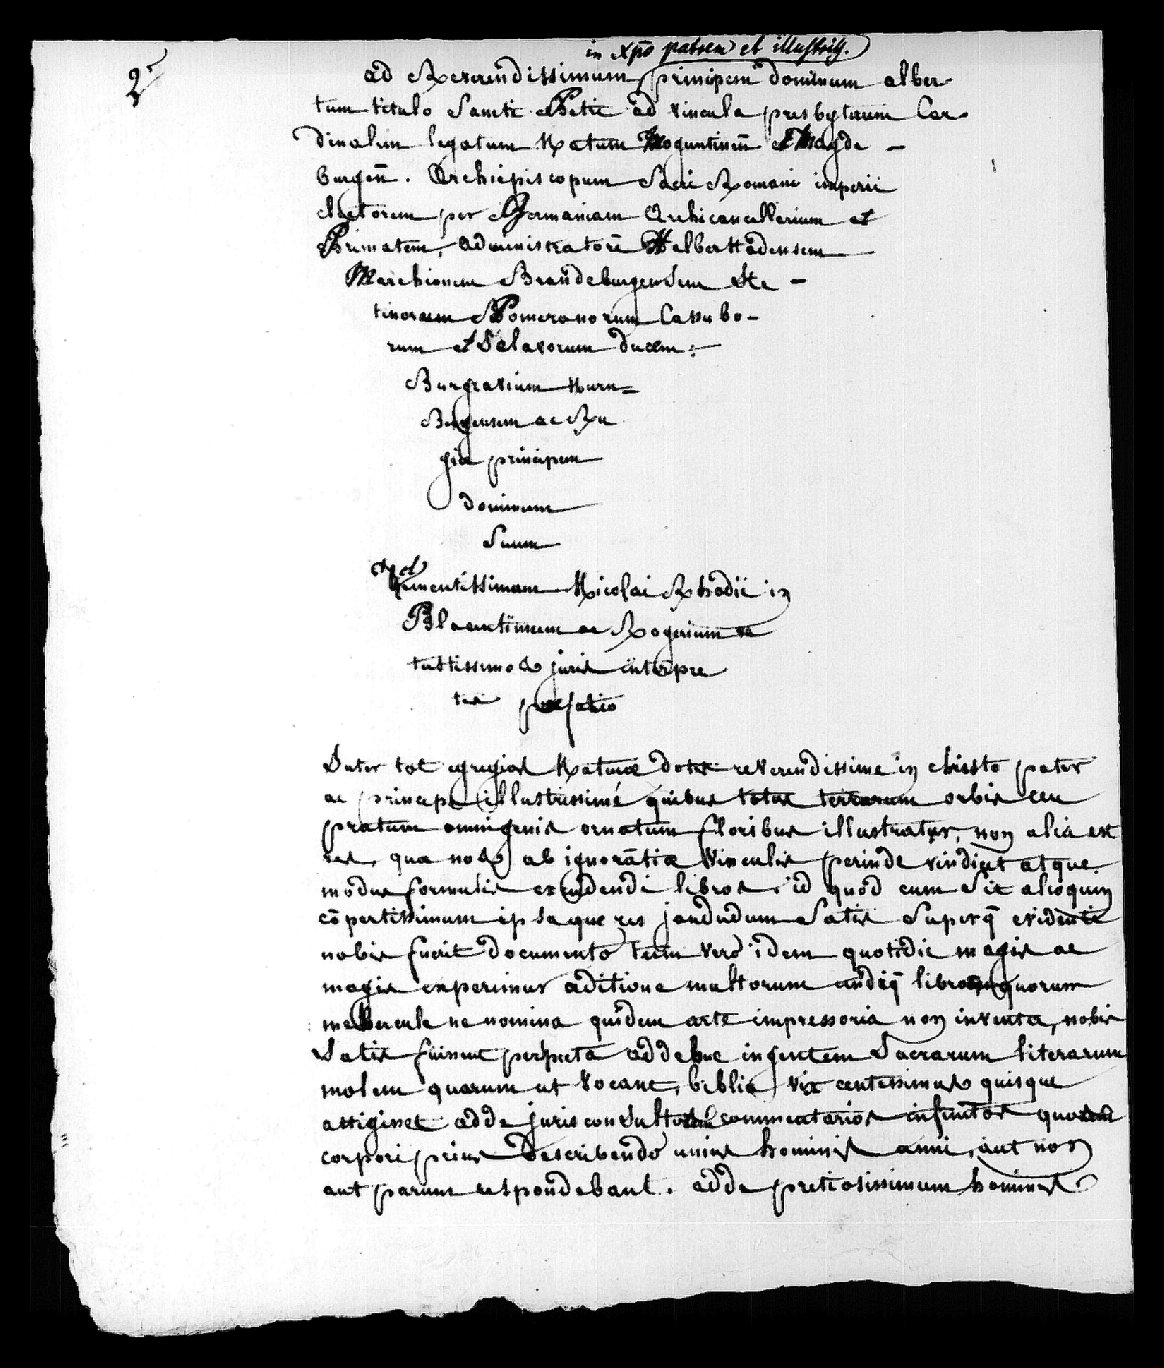 2°
in xp̄o patrem et illustriss.
ad Reverendissimum principem dominum alber
tum titulo Sancti Petri ad vincula presbyterum Car-
dinalem legatum Natum Moguntinen̄ et Magde -
burgen̄. Archiepiscopum Sacri Romani imperii
electorem per Germaniam Archicancellerium et
Primatem, Administratorē Halberstadensem
Marchionem Brandeburgensem Ste -
tinorum Pomeranorum Cassubo -
rum et Sclavorum ducem:
Burgravium Nurn=
Bergensem ac Ru
giæ principem
dominum
Suum
clementissimum Nicolai Rhodii in
Placentinum ac Rogerium ve
tustissimos juris interpre
tes præfatio
Inter tot egregias Naturæ dotes reverendissime in christo pater
ac princeps illustrissimé quibus totus terrarum orbis ceu
pratum omnigenis ornatum floribus illustratur, non alia est
res, qua nos ab ignorātiæ vinculis perinde vindicet atque
modus formulis excudendi libros, id quod cum sit alioquin
cōpertissimum ipsaque res jamdudum Satis Superq̄ evidenti
nobis fuerit documento tum vero idem quotidie magis ac
magis experimur æditione multorum undiq̄ librorum quorum
mehercule ne nomina quidem arte impressoria non inventa, nobis
Satis fuissent perspecta adde huc ingentem Sacrarum literarum
molem quarum ut vocant, biblia vix centessimus quisque
attigisset adde jurisconsultorum commentarios infinitos quorum
corpori prius Describendo unius hominis anni, aut non
aut parum respondebant. adde pretiosissimum hominis